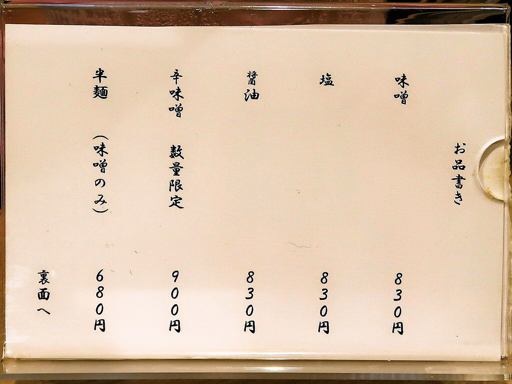 お品書き
味噌 830円
塩 830円
醤油 830円
辛味噌 数量限定 900円
半麺 (味噌のみ) 680円
裏面へ